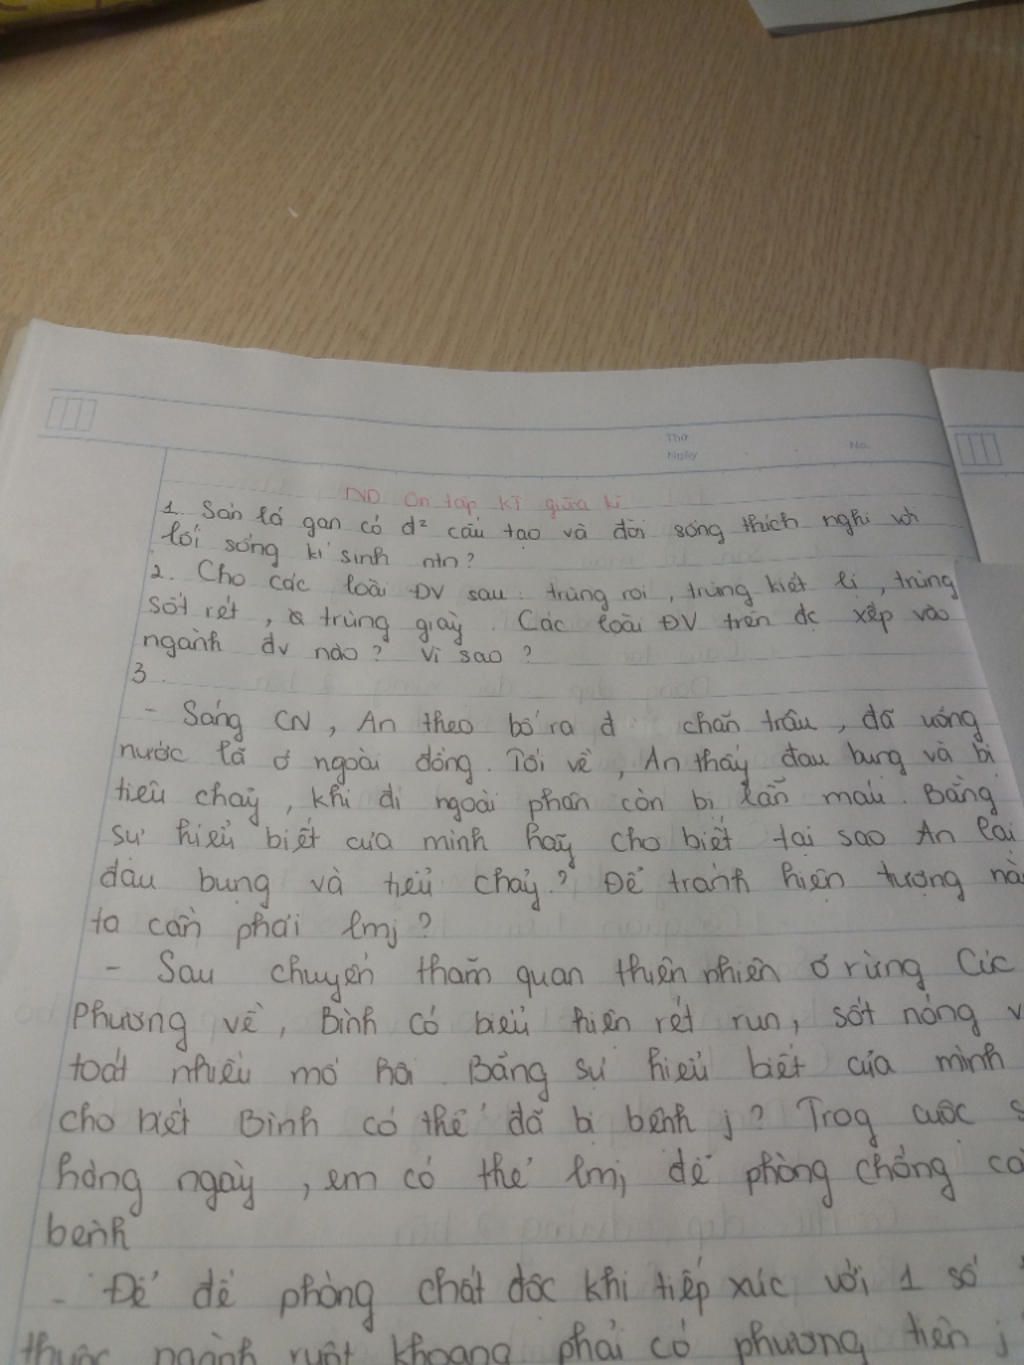 Thứ
Ngày
No.
ND Ôn tập kĩ giữa kì
1. Sán lá gan có đ² cấu tạo và đời sống thích nghi với
lối sống kí sinh ntn?
2. Cho các loài ĐV sau: trùng roi, trùng kiết lị, trùng
sốt rét, trùng giày. Các loài ĐV trên đc xếp vào
ngành đv nào? Vì sao?
3.
- Sáng CN, An theo bố ra đ chăn trâu, đã uống
nước lã ở ngoài đồng. Tối về, An thấy đau bụng và bị
tiêu chảy, khi đi ngoài phân còn bị lẫn máu. Bằng
sự hiểu biết của mình hãy cho biết tại sao An lại
đau bụng và tiêu chảy? Để tránh hiện tượng nà
ta cần phải lmj?
- Sau chuyến thăm quan thiên nhiên ở rừng Cúc
Phương về, Bình có biểu hiện rét run, sốt nóng v
toát nhiều mồ hôi. Bằng sự hiểu biết của mình
cho biết Bình có thể đã bị bệnh j? Trog cuộc s
hàng ngày, em có thể lmj để phòng chống
bệnh
- Để đề phòng chất độc khi tiếp xúc với 1 số
thuộc ngành ruột khoang phải có phương tiện j